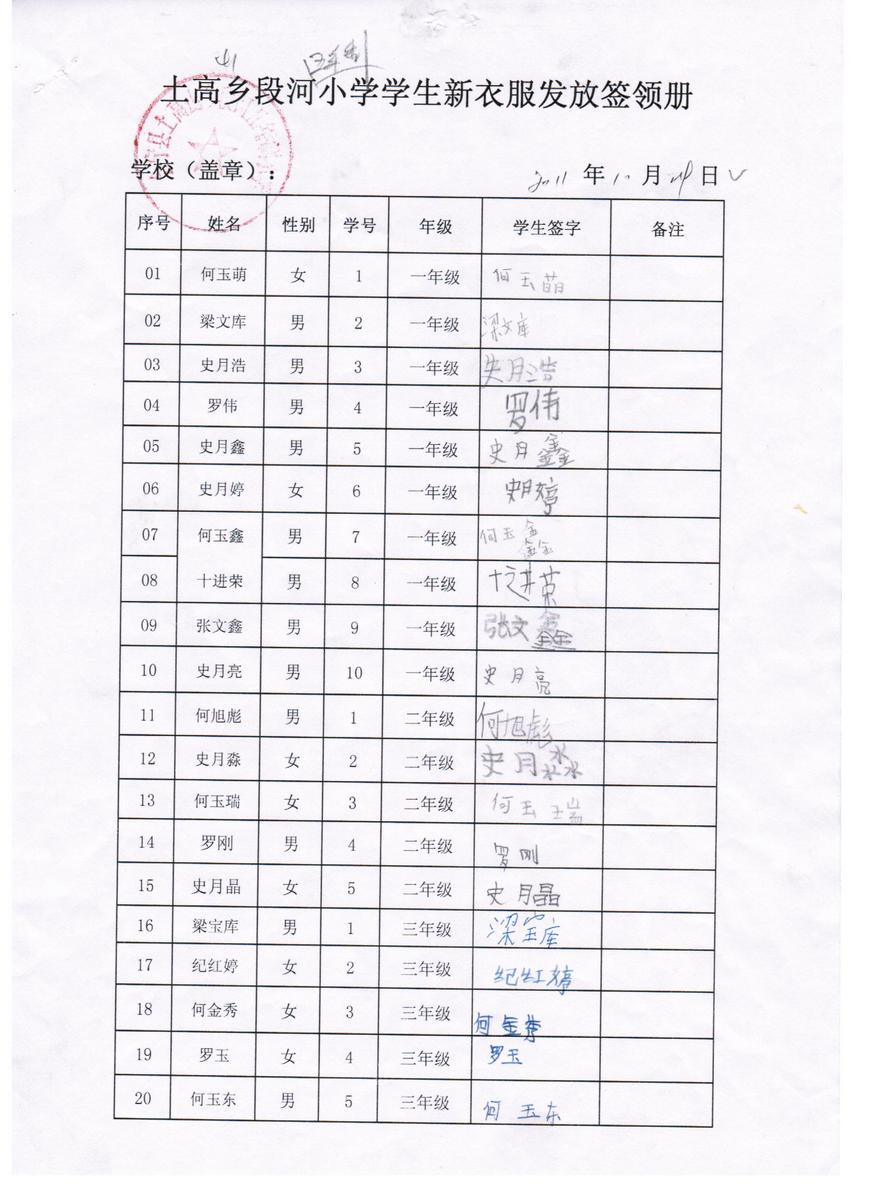 土高乡段河小学学生新衣服发放签领册
学校（盖章）： 2011 年 10 月 日
序号 姓名 性别 学号 年级 学生签字 备注
01 何玉萌 女 1 一年级 何玉萌
02 梁文库 男 2 一年级 梁文库
03 史月浩 男 3 一年级 史月浩
04 罗伟 男 4 一年级 罗伟
05 史月鑫 男 5 一年级 史月鑫
06 史月婷 女 6 一年级 史月婷
07 何玉鑫 男 7 一年级 何玉鑫
08 十进荣 男 8 一年级 十进荣
09 张文鑫 男 9 一年级 张文鑫
10 史月亮 男 10 一年级 史月亮
11 何旭彪 男 1 二年级 何旭彪
12 史月淼 女 2 二年级 史月淼
13 何玉瑞 女 3 二年级 何玉瑞
14 罗刚 男 4 二年级 罗刚
15 史月晶 女 5 二年级 史月晶
16 梁宝库 男 1 三年级 梁宝库
17 纪红婷 女 2 三年级 纪红婷
18 何金秀 女 3 三年级 何金秀
19 罗玉 女 4 三年级 罗玉
20 何玉东 男 5 三年级 何玉东